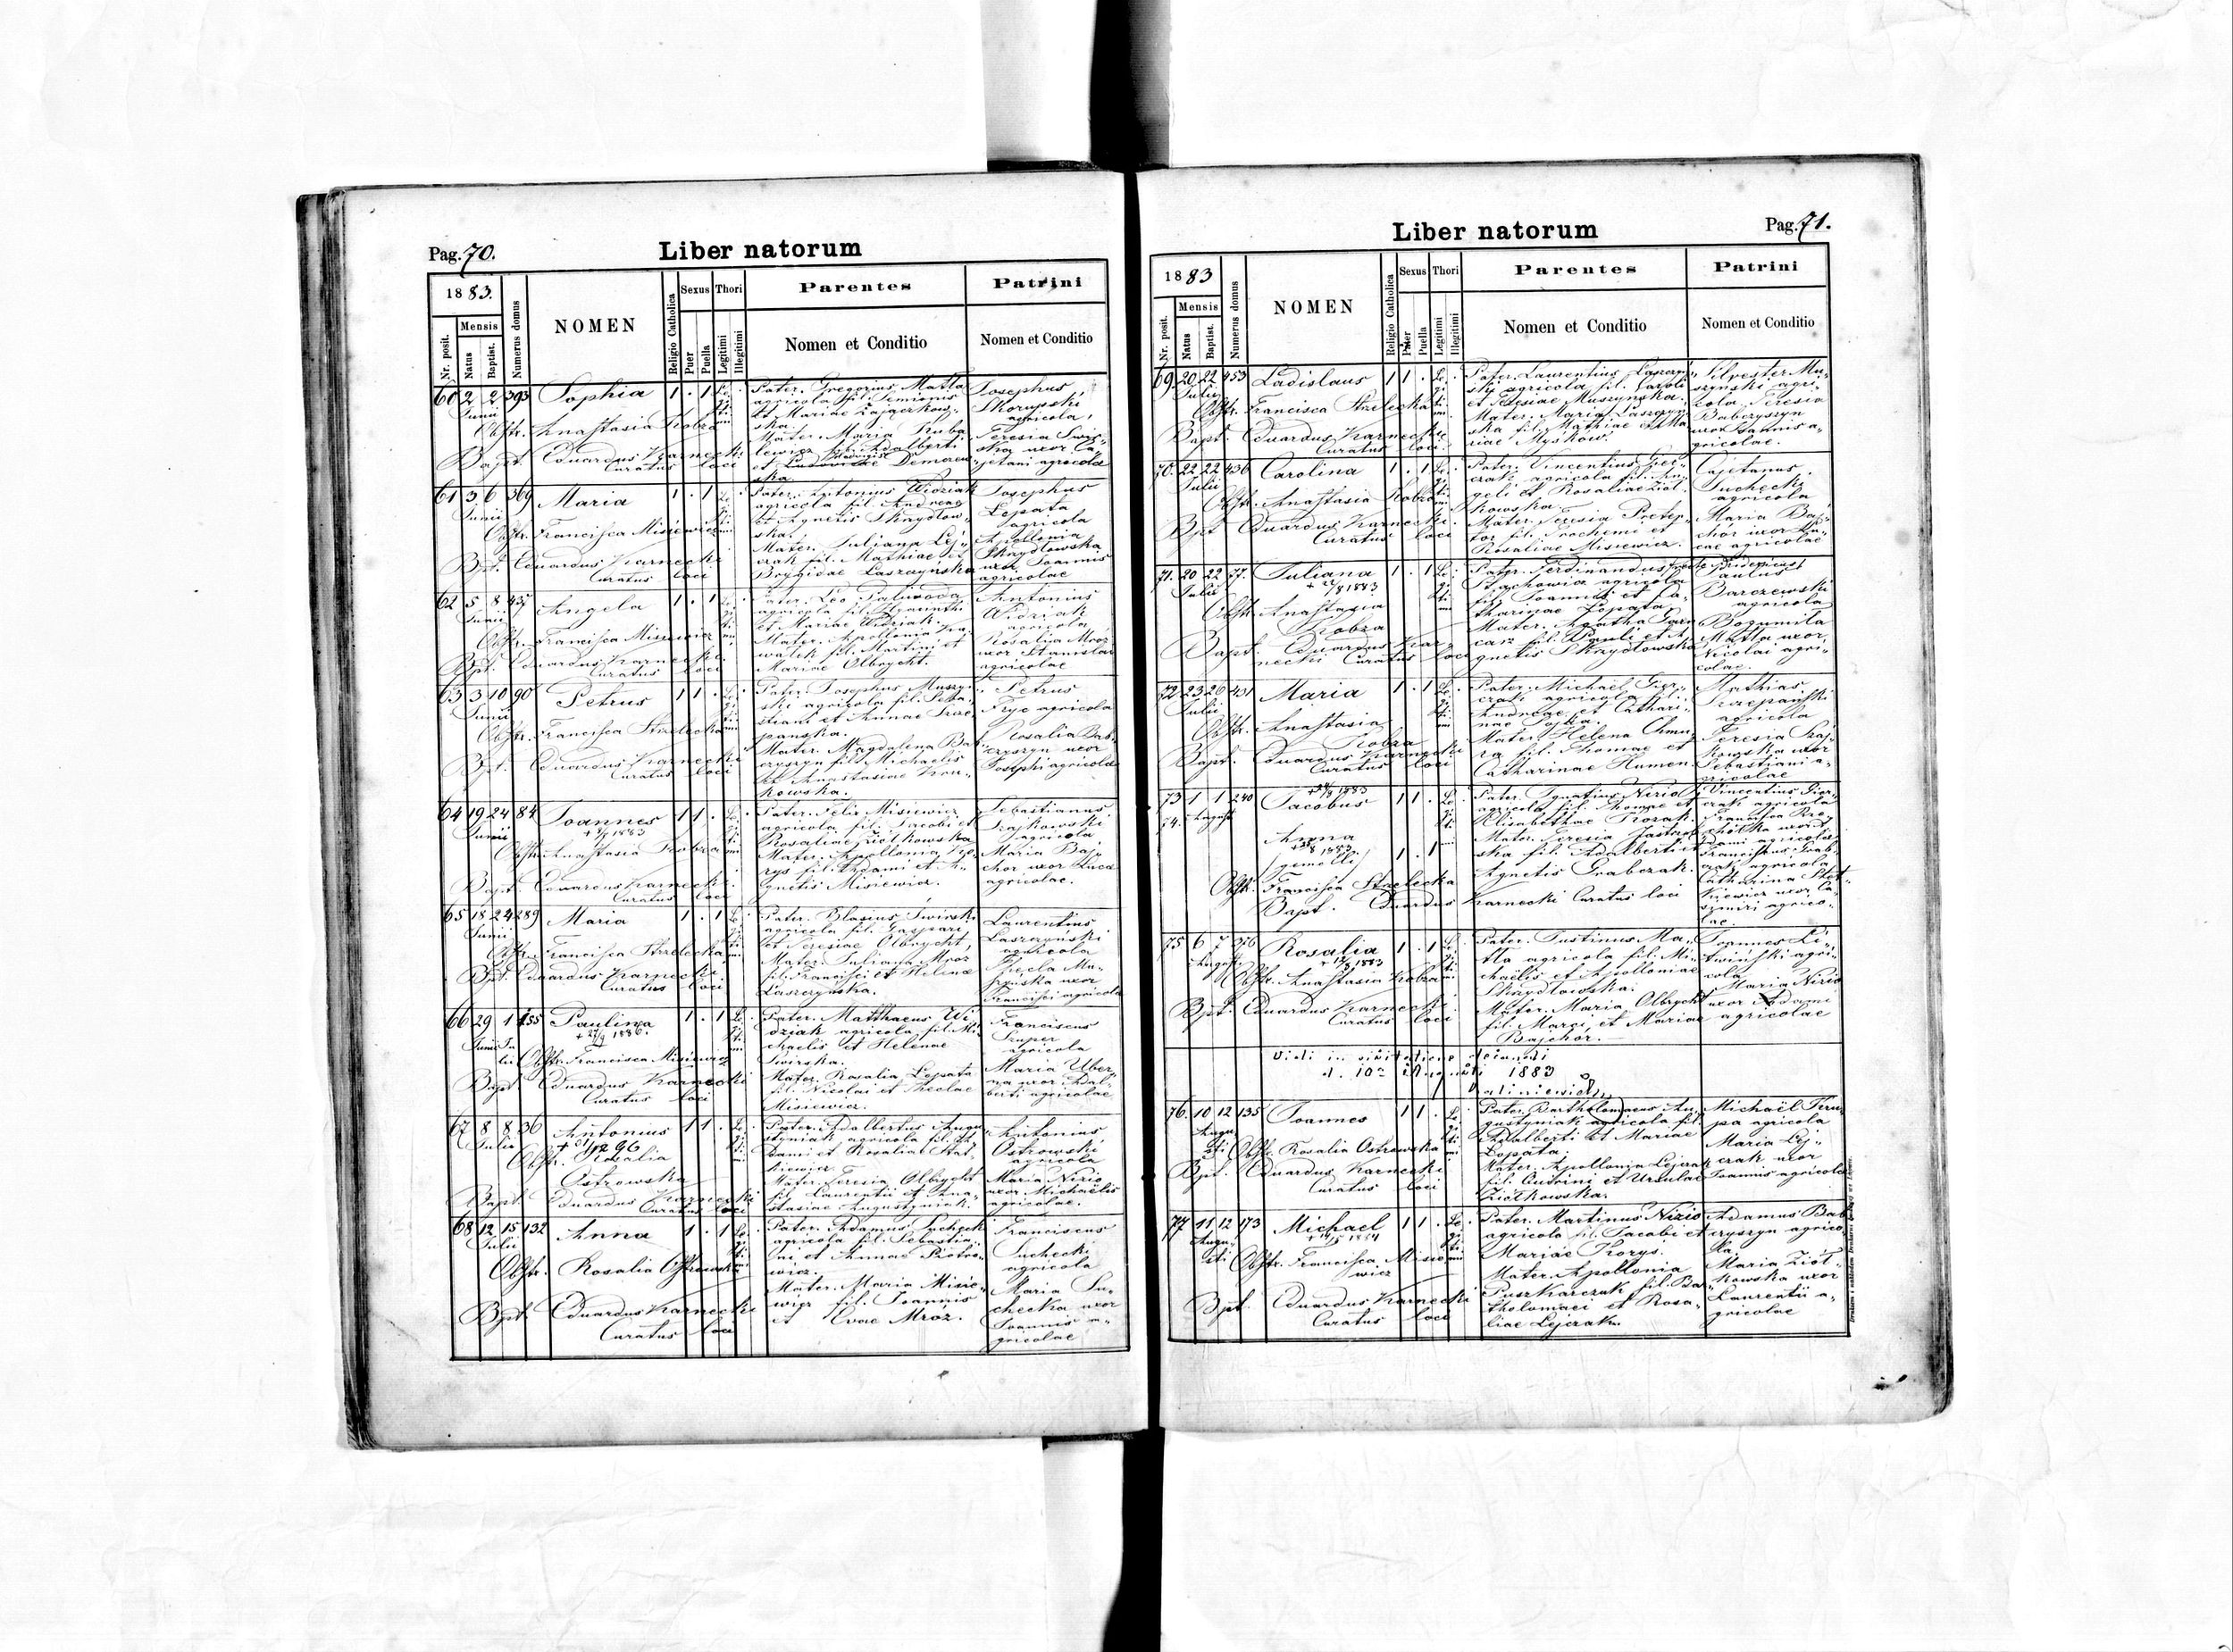 Pag. 70.
Liber natorum
1883.
Nr. posit.
Mensis
Natus
Baptist.
Numerus domus
NOMEN
Religio Catholica
Sexus
Puer
Puella
Thori
Legitimi
Illegitimi
Parentes
Nomen et Conditio
Patrini
Nomen et Conditio
60 2 2 393 Sophia 1 . 1
Junii
Obstr. Anastasia Kobza
Bapt. Eduardus Karnecki
Curatus loci
Pater. Gregorius Matla
agricola fil. Semionis
et Mariae Zajączkow-
ska.
Mater. Maria Kuba
lewicz fil. Adalberti
Josephus
Skorupski
agricola,
Teresia Świr-
ska uxor Ca-
jetani agricolae
61 3 6 369 Maria 1 . 1
Junii
Obstr. Francisca Misiewicz
Bpt. Eduardus Karnecki
Curatus loci
Pater. Antonius Widziak
agricola fil. Andreae
et Agnetis Skrzydlow-
ska.
Mater. Juliana Lej-
czak fil. Mathiae et
Brygidae Laszczyńska
Josephus
Lopata
agricola
Apollonia
Skrzydlowska
uxor Joannis
agricolae
62 5 8 437 Angela 1 . 1
Junii
Obstr. Francisca Misiewicz
Bpt. Eduardus Karnecki
Curatus loci
Pater. Leo
agricola fil. Hyacinthi
et Mariae Widziak.
Mater. Apollonia Ka-
walek fil. Martini et
Mariae Olbrycht.
Antonius
Widziak
agricola
Rosalia Mróz
uxor Stanislai
agricolae
63 3 10 90 Petrus 1 1 .
Junii
Obstr. Francisca Strzelecka
Bpt. Eduardus Karnecki
Curatus loci
Pater. Josephus Muszyń-
ski agricola fil. Seba-
stiani et Annae Szcze-
pańska.
Mater. Magdalena Bab-
czyszyn fil. Michaelis
et Anastasiae Kru-
kowska.
Petrus
Fryc agricola
Rosalia Bab-
czyszyn uxor
Josephi agricolae
64 19 24 84 Joannes 1 1 .
Junii
Obstr. Anastasia Kobza
Bapt. Eduardus Karnecki
Curatus loci
Pater. Felix Misiewicz
agricola fil. Jacobi et
Rosaliae Ziółkowska
Mater. Apollonia Ko-
rys fil. Adami et A-
gnetis Misiewicz.
Sebastianus
Szajkowski
agricola
Maria Baj-
chor uxor Lucae
agricolae.
65 18 24 289 Maria 1 . 1
Junii
Obstr. Francisca Strzelecka
Bpt. Eduardus Karnecki
Curatus loci
Pater. Blasius Świrski
agricola fil. Gaspari,
et Teresiae Olbrycht,
Mater. Juliana Mroz
fil. Francisci et Helenae
Laszczyńska.
Laurentius
Laszczyński
agricola
Thecla Mu-
szyńska uxor
Francisci agricolae
66 29 1 155 Paulina 1 . 1
Junii Ju
lii Obstr. Francisca Misiewicz
Bapt. Eduardus Karnecki
Curatus loci
Pater. Matthaeus Wi-
dziak agricola fil. Mi-
chaelis et Helenae
Świrska.
Mater. Rosalia Lopata
fil. Nicolai et Theclae
Misiewicz.
Franciscus
Szuper
agricola
Maria Uber-
na uxor Adal-
berti agricolae
67 8 8 36 Antonius 1 1 .
Obstr. Rosalia
Ostrowska
Bapt Eduardus Karnecki
Curatus loci
Pater. Adalbertus Augu-
styniak agricola fil. A-
dami et Rosaliae Stat-
kiewicz.
Mater. Teresia Olbrycht
fil. Laurentii et Ana-
stasiae Augustyniak.
Antonius
Ostrowski
agricola
Maria Nizio
uxor Michaëlis
agricolae.
68 12 15 132 Anna 1 . 1
Julii
Obstr. Rosalia Ostrowska
Bpt. Eduardus Karnecki
Curatus loci
Pater. Adamus Suchecki
agricola fil. Sebastia-
ni et Annae Piotro-
wicz.
Mater. Maria Misie-
wicz fil. Joannis
et Evae Mróz.
Franciscus
Suchecki
agricola
Maria Su-
checka uxor
Joannis a-
gricolae
Liber natorum
Pag. 71.
1883
Nr. posit.
Mensis
Natus
Baptist.
Numerus domus
NOMEN
Religio Catholica
Sexus
Puer
Puella
Thori
Legitimi
Illegitimi
Parentes
Nomen et Conditio
Patrini
Nomen et Conditio
69. 20 22 453 Ladislaus 1 1 .
Julii
Obstr. Francisca Strzelecka
Bapt Eduardus Karnecki
Curatus loci
Pater. Laurentius Laszczyń-
ski agricola fil. Caroli
et Teresiae Muszyńska.
Mater. Maria Laszczyń-
ska fil. Mathiae et Ma-
riae Myśków.
Silvester Mu-
szyński agri-
cola. Teresia
Babczyszyn
uxor Joannis a-
gricolae.
70. 22 22 436 Carolina 1 . 1
Julii
Obstr. Anastasia Kobza
Bpt Eduardus Karnecki
Curatus loci
Pater. Vincentius Gier-
czak agricola fil. An-
geli et Rosaliae Ziół-
kowska.
Mater. Teresia Pretep-
tor fil. Prochemi et
Rosaliae Misiewicz.
Cajetanus
Suchecki
agricola
Maria Baj-
chór uxor Lu-
cae agricolae
71. 20 22 77. Juliana 1 . 1
Julii
Obstr Anastasia
Kobza
Bapt Eduardus Kar-
necki Curatus loci
Pater. Ferdinandus
Stachowicz agricola
fil. Joannis et Ca-
tharinae Lopata.
Mater. Agatha
fil. Pauli et A-
gnetis Skrzydlowska
Paulus
Barczewski
agricola
Bogumila
Matla uxor,
Nicolai agri-
colae.
72 23 26 431 Maria 1 . 1
Julii
Obstr. Anastasia
Kobza
Bapt. Eduardus Karnecki
Curatus loci
Pater. Michaël Gier-
czak agricola fil.
Andreae et Cathari-
nae
Mater. Helena Chmu-
ra fil. Thomae et
Catharinae Humen.
Mathias
Szczepański
agricola
Teresia Szaj-
kowska uxor
Sebastiani a-
gricolae
73 1 1 240 Jacobus 1 1 .
74.
Anna
(gemelli) 1 . 1
Obstr. Francisca Strzelecka
Bapt. Eduardus Karnecki Curatus loci
Pater. Ignatius Nizio
agricola fil. Thomae et
Elisabethae Kozak.
Mater. Teresia
ska fil. Adalberti et
Agnetis Grabczak.
Vincentius Gier-
czak agricola
Catharina Stat-
kiewicz uxor Ca-
simiri agrico-
lae.
75 6 7 256 Rosalia 1 . 1
Augusti
Obstr. Anastasia Kobza
Bpt. Eduardus Karnecki
Curatus loci
Pater. Justinus Ma-
tla agricola fil. Mi-
chaëlis et Apolloniae
Skrzydlowska.
Mater. Maria Olbrycht
fil. Marci et Mariae
Bajchór.
Joannes Li-
twiński agri-
cola
Maria Nizio
uxor Adami
agricolae
Vidi in visitatione decanali
d. 10a Augusti 1883
76. 10 12 135 Joannes 1 1 .
Augu-
sti Obstr. Rosalia Ostrowska
Bpt. Eduardus Karnecki
Curatus loci
Pater. Bartholomaeus Au-
gustyniak agricola fil.
Adalberti et Mariae
Lopata.
Mater. Apollonia Lejczak
fil. Cudrini et Ursulae
Ziółkowska.
Michaël
agricola
Maria Lej-
czak uxor
Joannis agricolae
77 11 12 173 Michael 1 1 .
Augu-
sti Obstr. Francisca Misie-
wicz
Bpt. Eduardus Karnecki
Curatus loci
Pater. Martinus Nizio
agricola fil. Jacobi et
Mariae Korys.
Mater. Apollonia
Puszkarczuk fil. Bar-
tholomaei et Rosa-
liae Lejczak.
Adamus Bab-
czyszyn agrico-
la
Maria Ziół-
kowska uxor
Laurentii a-
gricolae